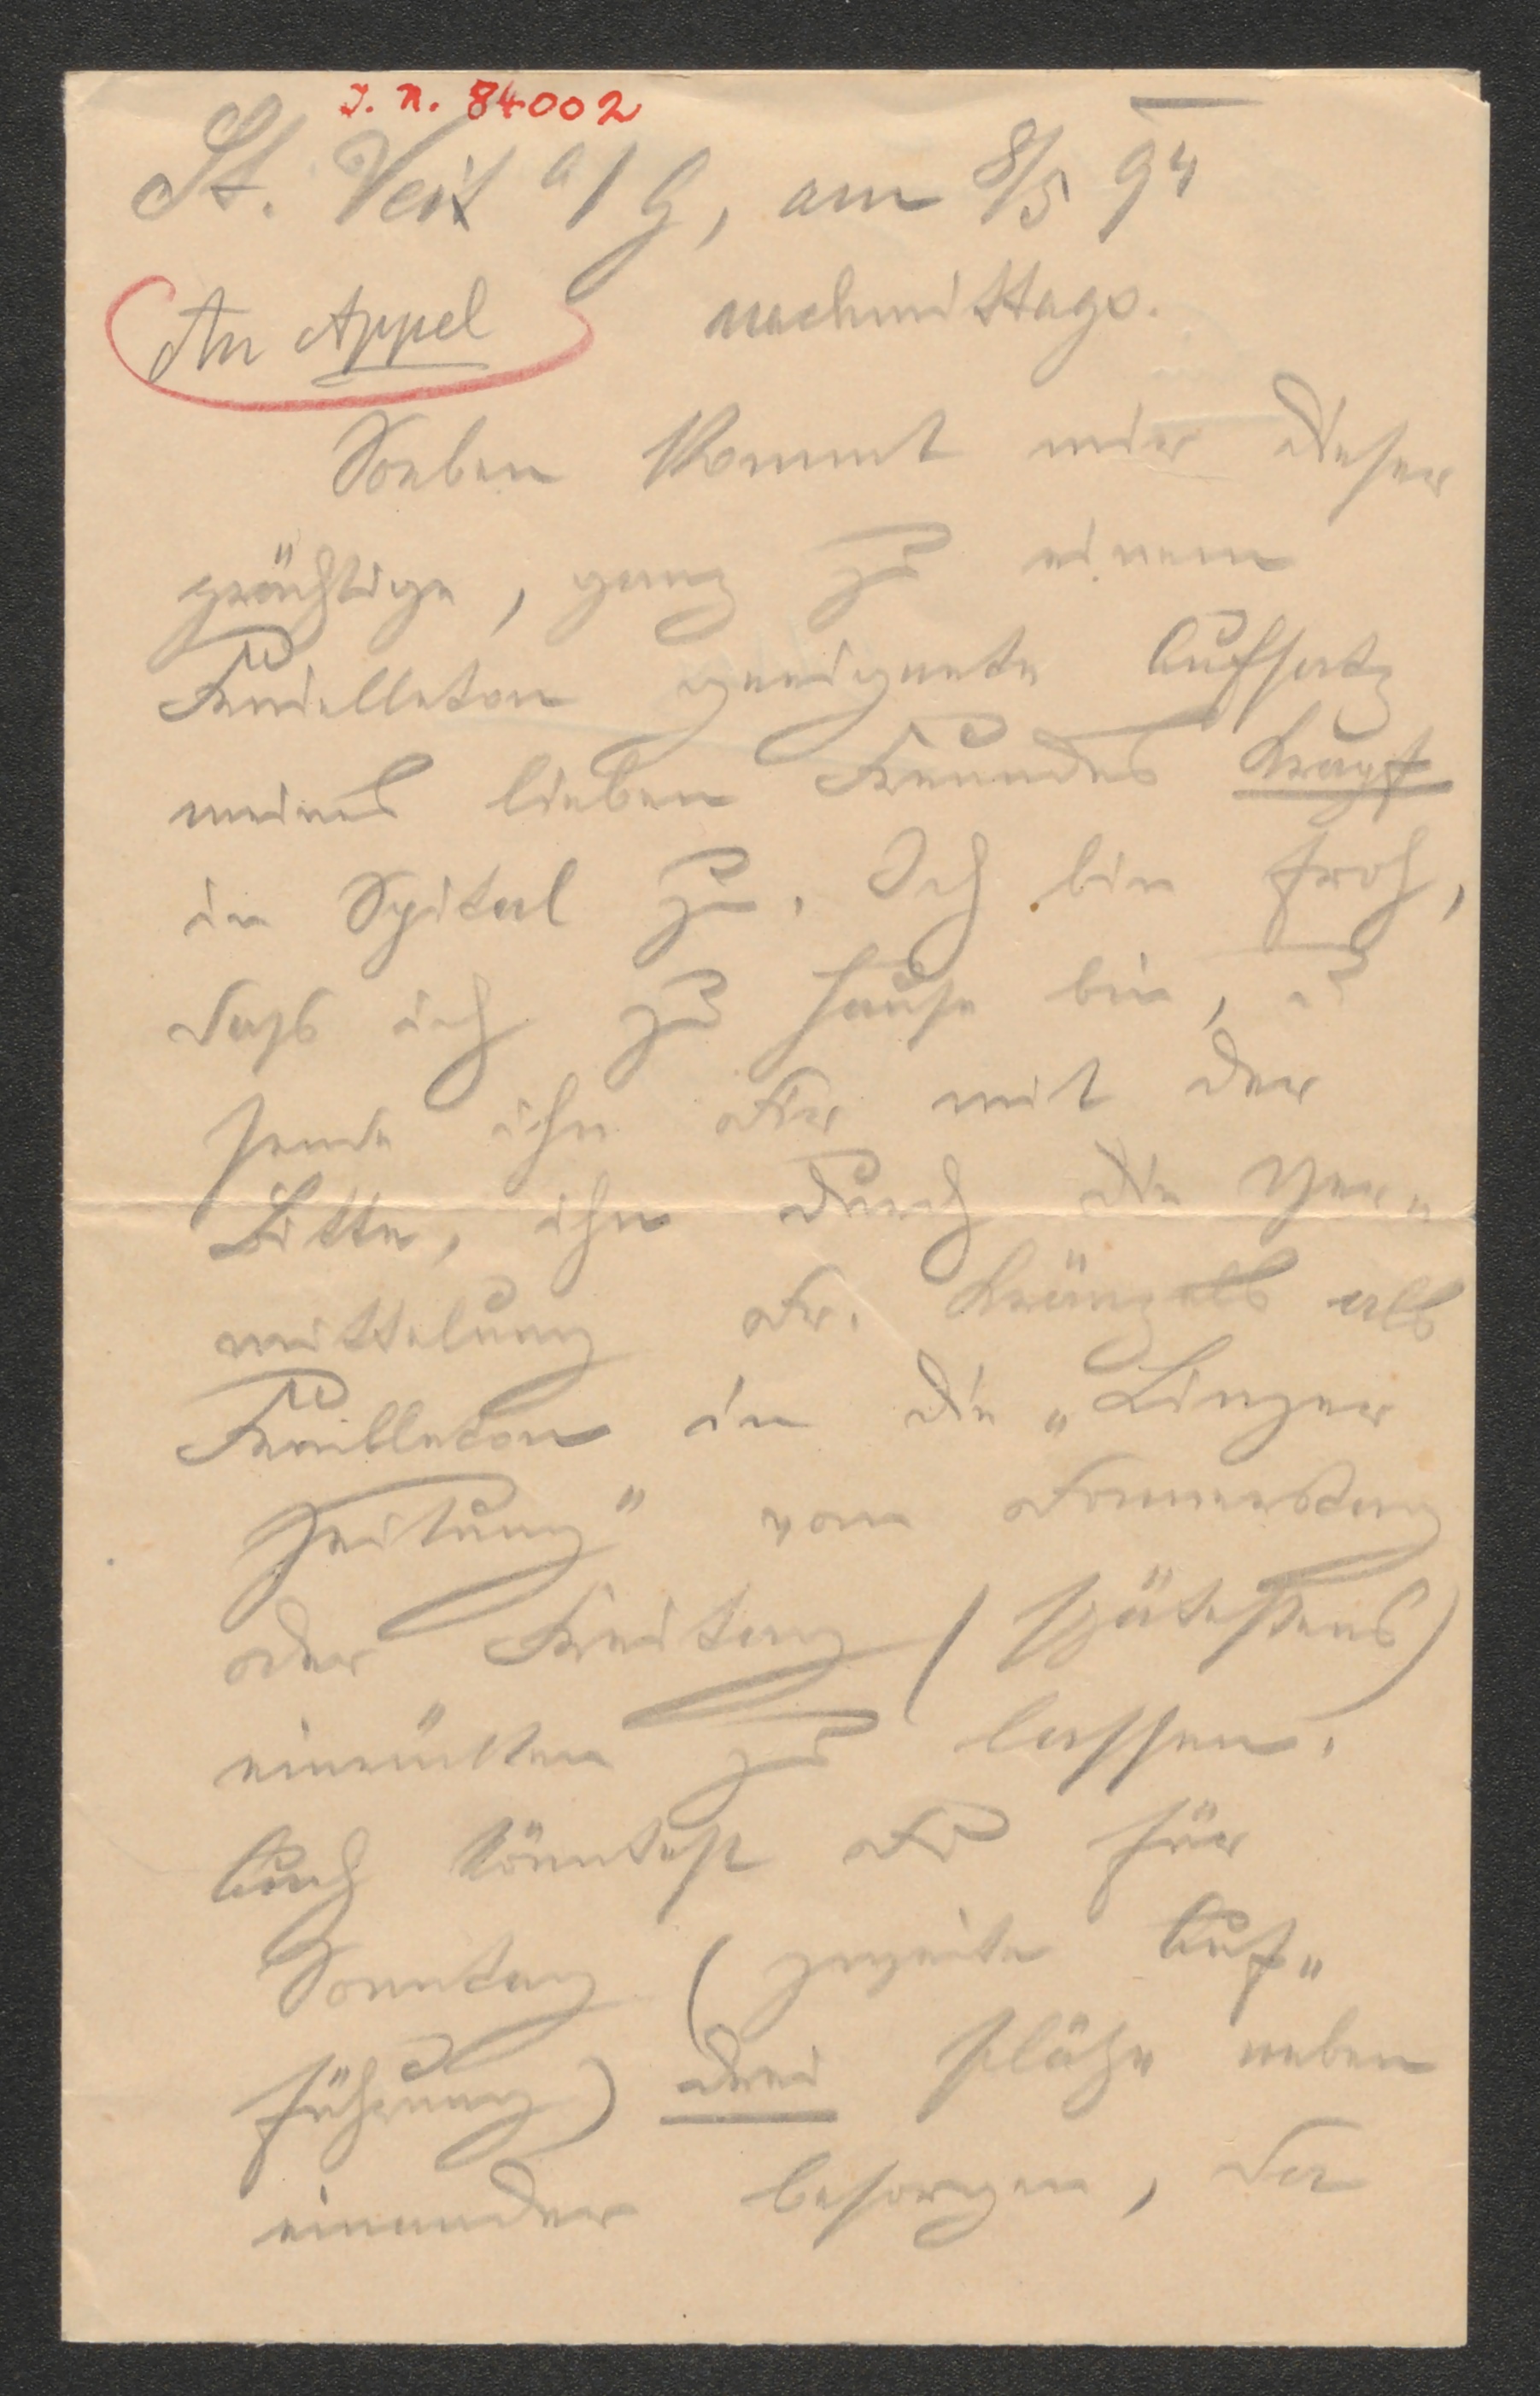 J. N. 84002
St. Veit a/G, am 8/5 94
An Appel nachmittags.
Soeben kommt mir dieser
prächtige, ganz zu einem
Feuilleton geeignete Aufsatz
meines lieben Freundes Krapf
in Spital zu. Ich bin froh,
dass ich zu Hause bin, u
sende ihn Dir mit der
Bitte, ihn durch die Ver„
mittelung Dr. als
Feuilleton in die „Linzer
Zeitung“ vom Donnerstag
oder Freitag (spätestens)
einrücken zu lassen.
Auch könntest Du für
Sonntag (zweite Auf„
führung) drei Plätze neben
einander besorgen, da